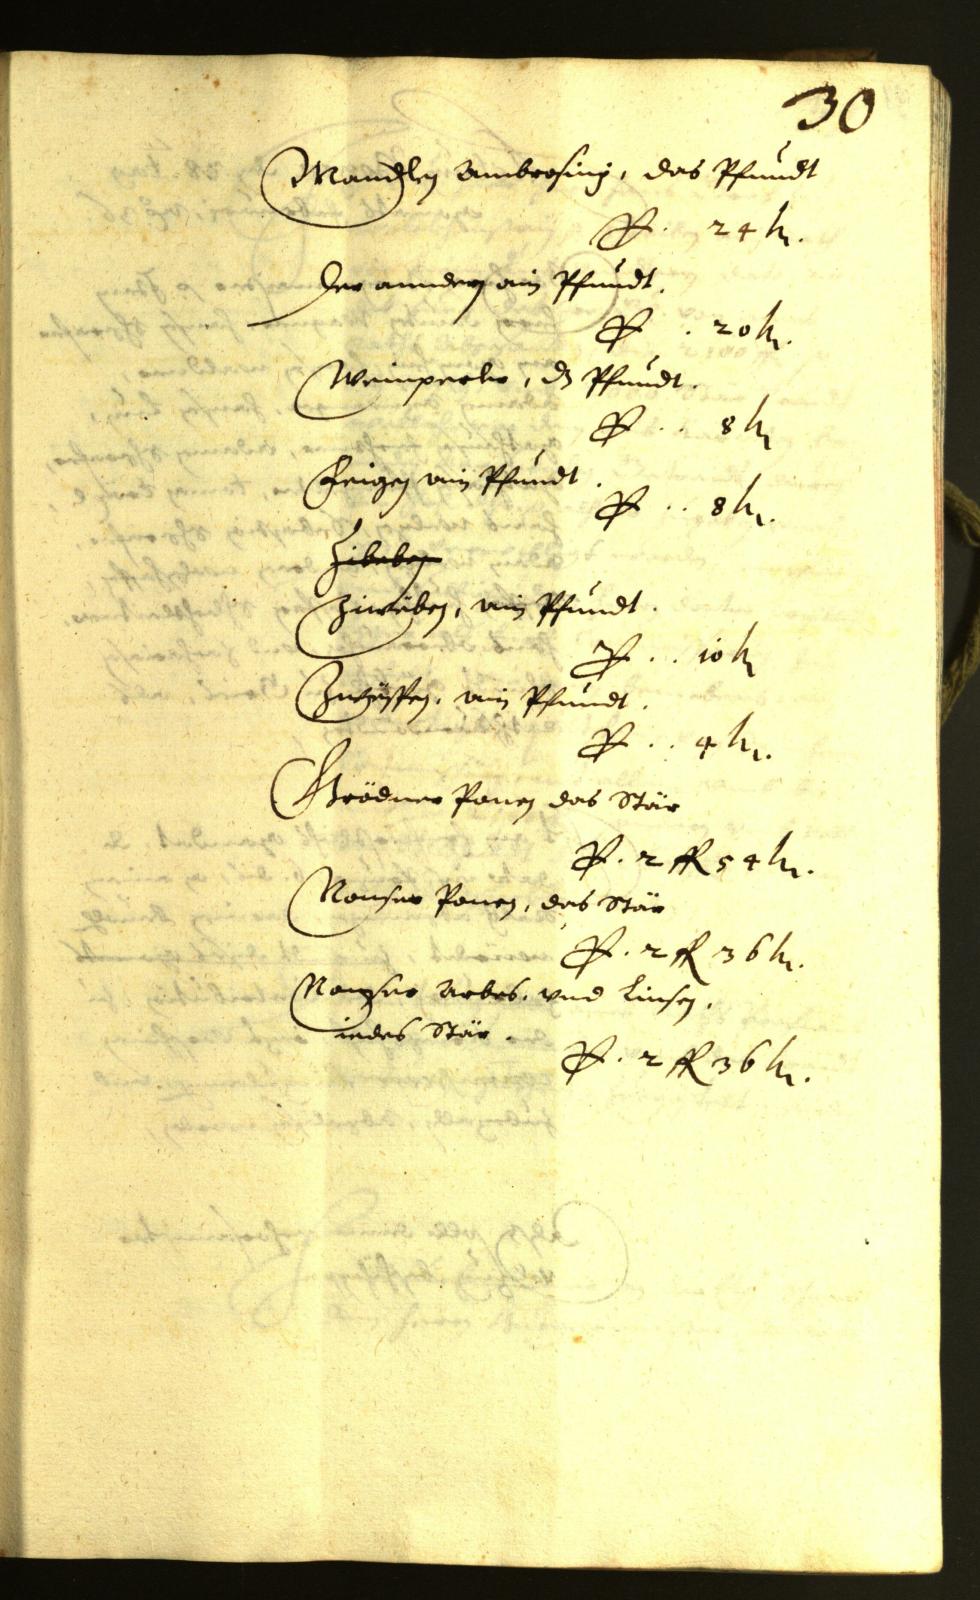 30
Mandlen Ambrosinj, das Pfundt
P. 24 kr.
Der andern ain Pfundt.
P. . 20 kr.
Weinperler, dz Pfundt.
P. . . 8 kr
Feigen ain Pfundt.
P. . . 8 kr.
Zibeben
Ziweben, ain Pfundt.
P. . . 10 kr
Zwespen, ain Pfundt.
P. . . 4 kr.
Grödner Ponen das Stär
P. 2 fl 54 kr.
Nonser Ponen, das Stär
P. 2 fl 36 kr.
Nonser Arbes, vnd Linsen,
iedes Stär.
P. 2 fl 36 kr.